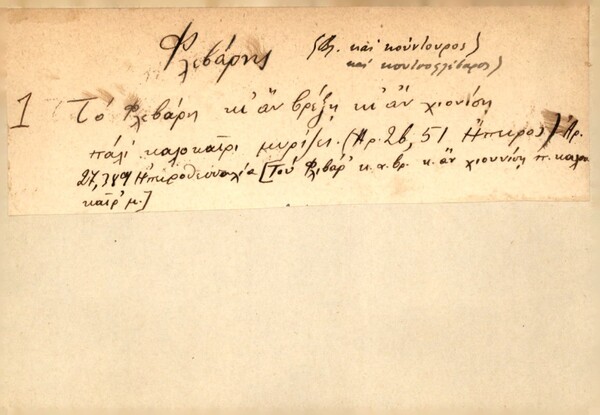 Φλεβάρης (βλ. καὶ κούντουρος)
καὶ κουτσοφλέβαρος)
1 Τὸ Φλεβάρη κι' ἂν βρέξῃ κι' ἂν χιονίσῃ
πάλι καλοκαῖρι μυρίζει. (Ἀρ. 26, 51 Ἤπειρος) Ἀρ.
27, Ἠπειροθεσσαλία [Τοὺ Φλιβάρ' κ. ἂ. βρ. κ. ἂν χιουνίσῃ π. καλο
καῖρ' μ.]